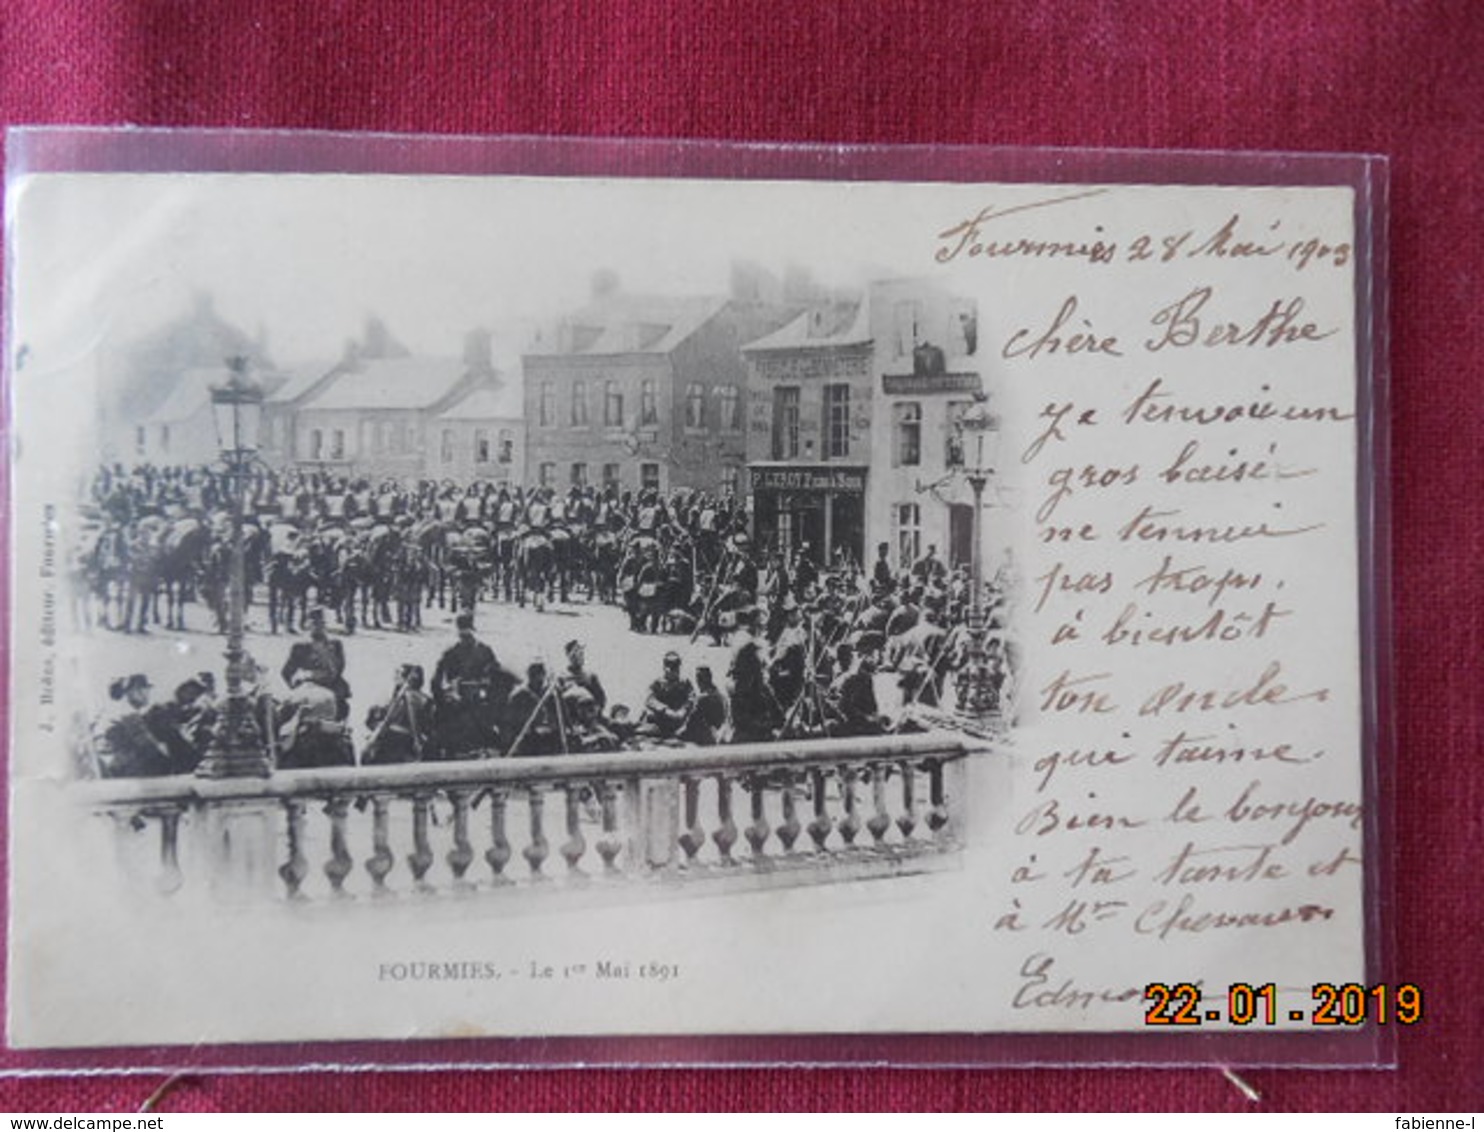 Fourmies 28 Mai 1903
chère Berthe
Je tenvoie un
gros baisé
ne tennui
pas trops.
à bientôt
ton oncle
qui taime.
Bien le bonjour
à ta tante et
à Mr
Edmond
P. LEROY
J. éditeur, Fourmies
FOURMIES. - Le 1er Mai 1891
22.01.2019
www.delcampe.net
fabienne-l